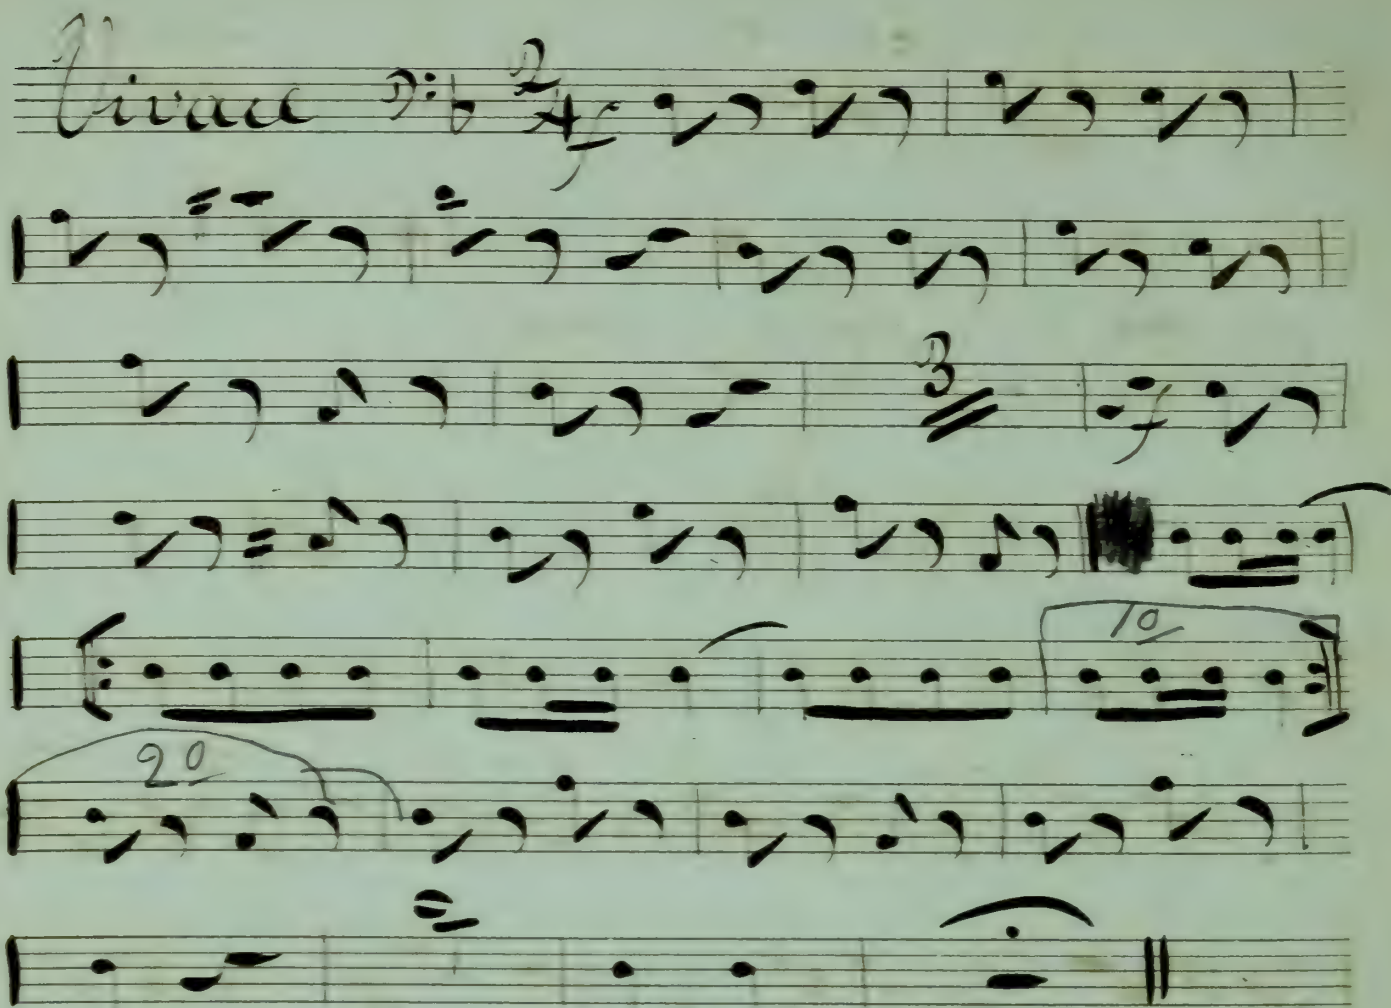 Vivace 2 4 f
3
f
10
20